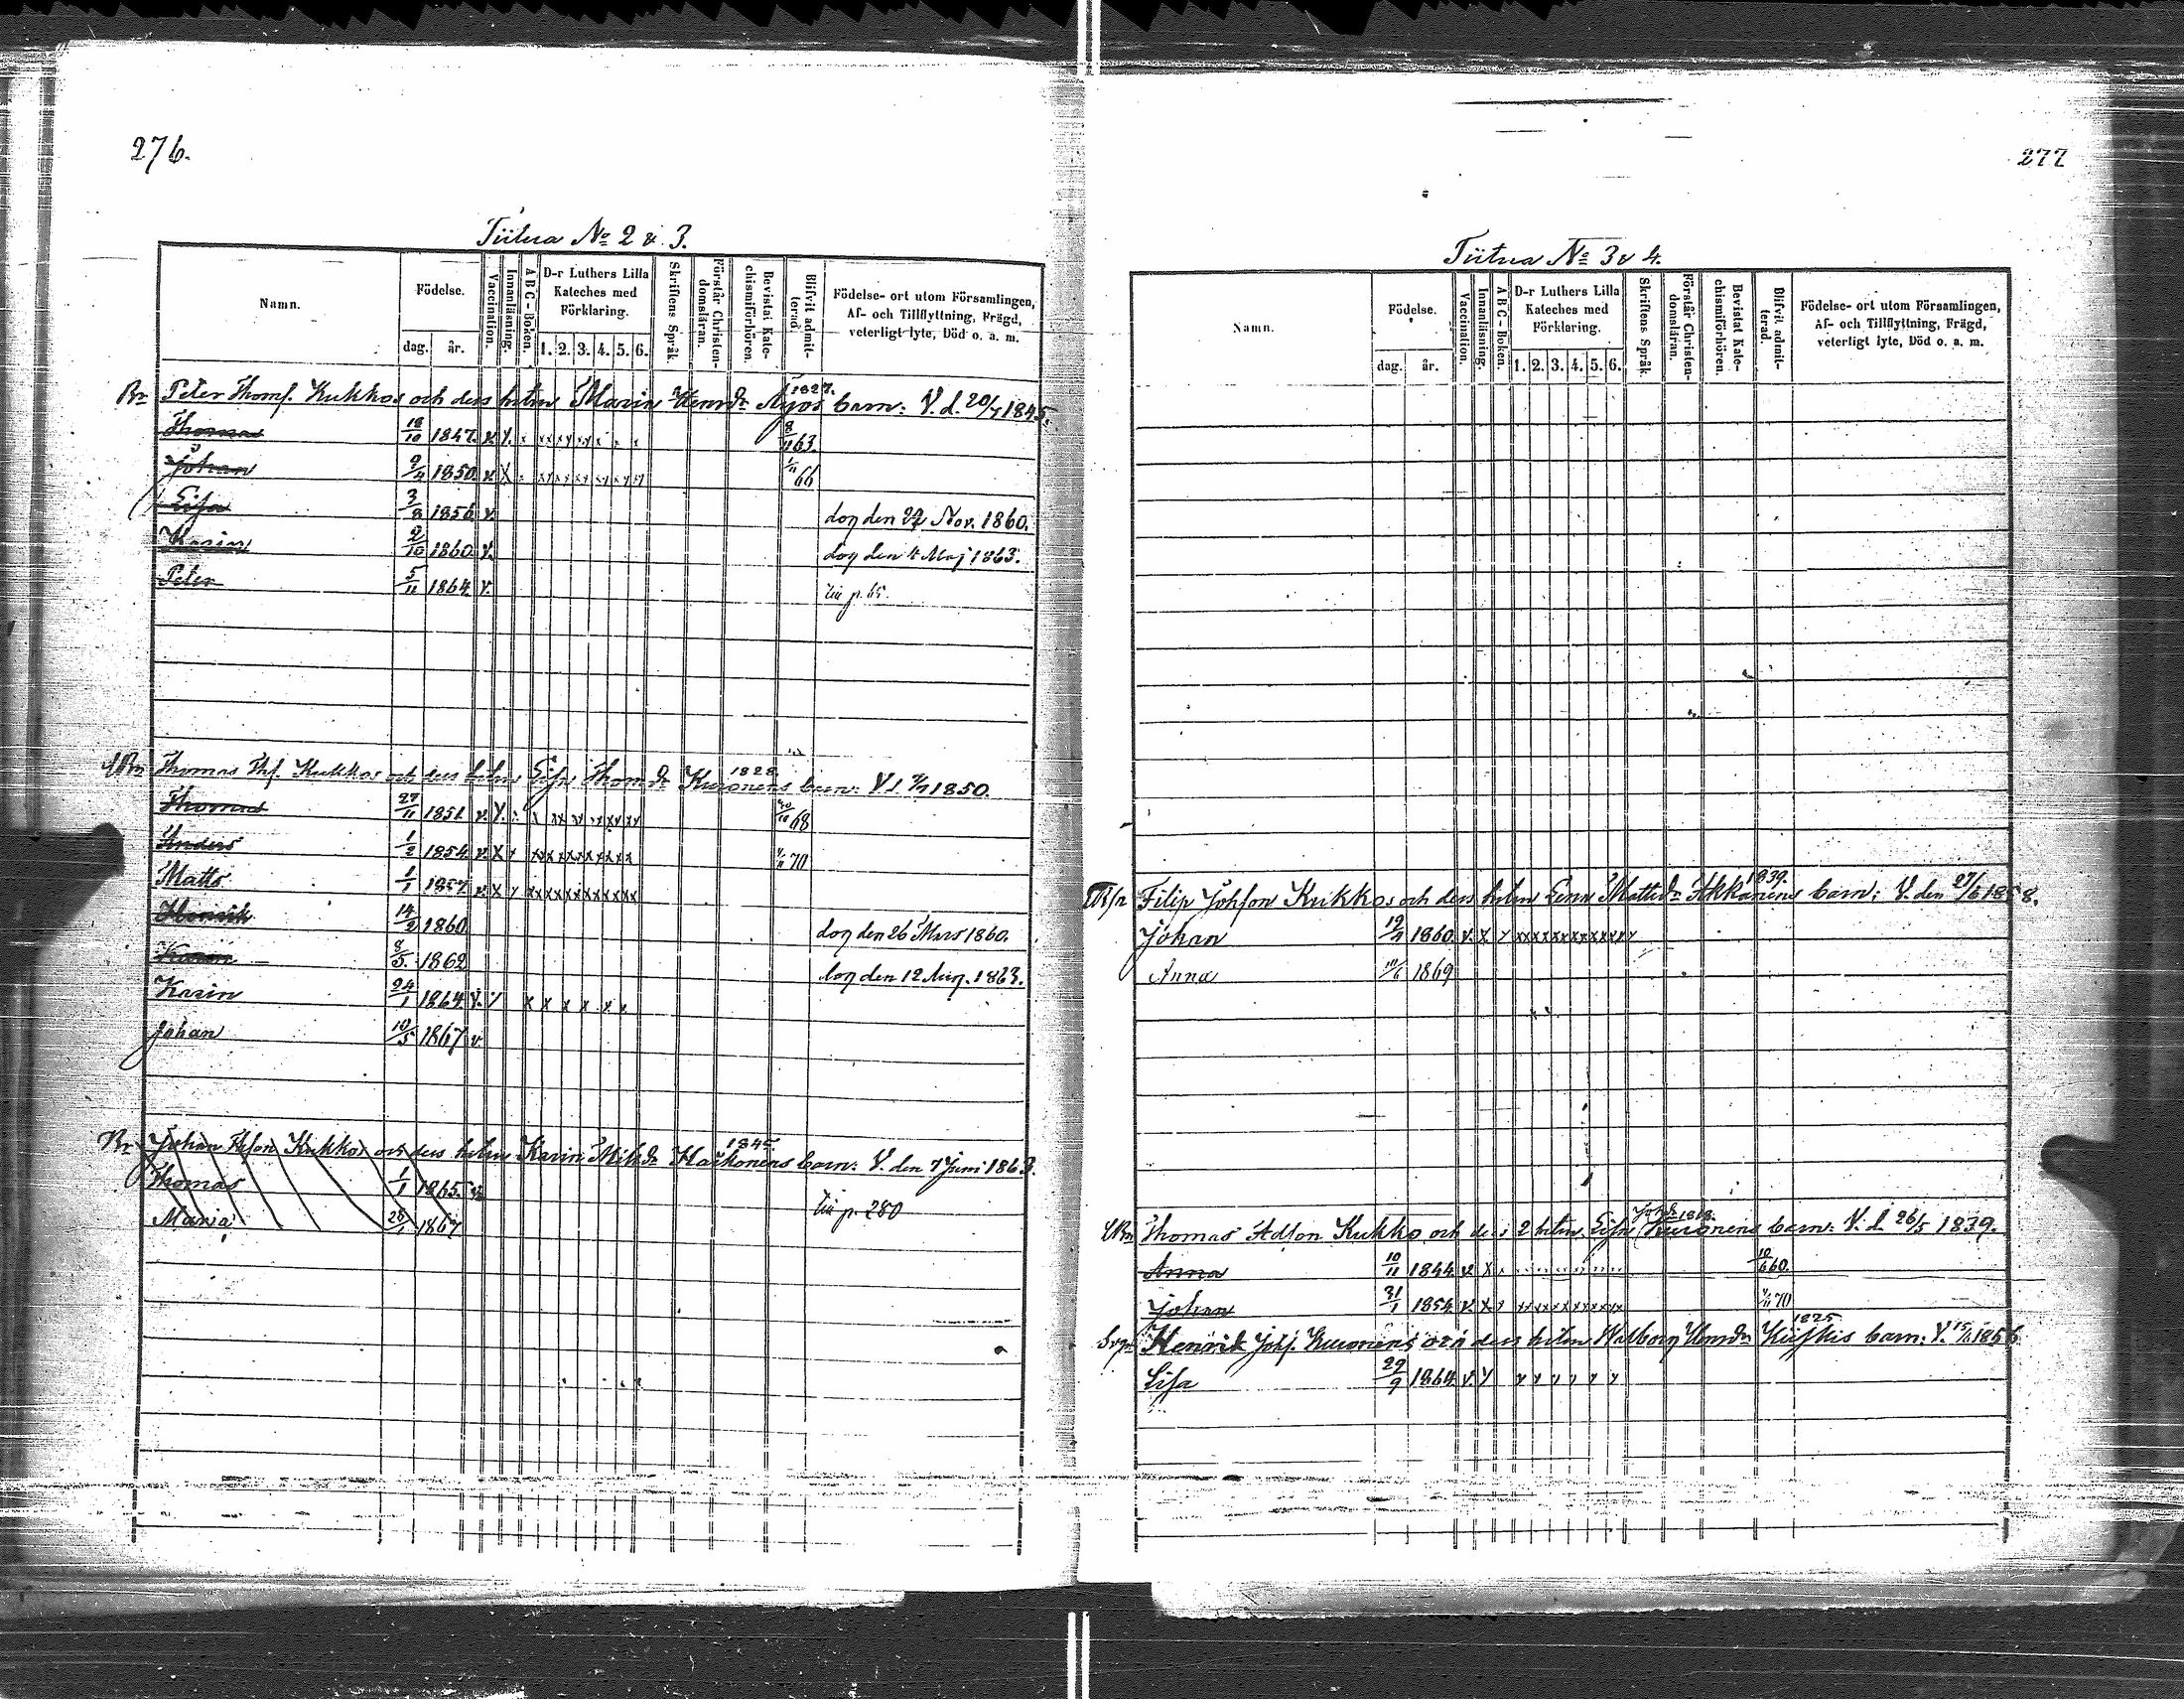 276.
Tiitua No 2 & 3.
Namn.
Födelse.
dag.
år.
Vaccination.
Innanläsning.
A B C - Boken.
D-r Luthers Lilla
Kateches med
Förklaring.
1. 2. 3. 4. 5. 6.
Skriftens Språk.
Förstår Christen-
domsläran.
Bevistat Kate-
chismiförhören.
Blifvit admit-
terad.
Födelse- ort utom Församlingen,
Af- och Tillflyttning, Frägd,
veterligt lyte, Död o. a. m.
1827.
Peter Thoms. Kukkos och dess hstru Maria Henrdr barn: V. d. 20/7 1845.
Thomas 18/10 1847. v. 8/11 63.
Johan 9/4 1850. v. X 1/11 66
Lisa 3/8 1856 v. dog den 27 Nov. 1860.
Karin 2/10 1860 v. dog den 4 Maj 1863.
Peter 5/11 1864 v.
1828
Thomas Thf. Kukkos och dess hstru Lisa Thomdr Kuronens barn: 1850.
Thomas 27/11 1851 v. X 68
Anders 1/2 1854 v. X 70
Matts 1/1 1857 v. X
Henrik 14/2 1860 dog den 26 Mars 1860.
Karin 8/5 1862 dog den 12 Aug. 1863.
Karin 24/1 1864 v.
Johan 10/5 1867 v.
1845
Johan Kukkos och dess hstru Karin Mikdr barn: V. den 7 Juni 1863.
Thomas 1/1 1865.
Maria 1867 p. 280
277
Tiitua No 3 & 4.
Namn.
Födelse.
dag.
år.
Vaccination.
Innanläsning.
A B C - Boken.
D-r Luthers Lilla
Kateches med
Förklaring.
1. 2. 3. 4. 5. 6.
Skriftens Språk.
Förstår Christen-
domsläran.
Bevistat Kate-
chismiförhören.
Blifvit admit-
terad.
Födelse- ort utom Församlingen,
Af- och Tillflyttning, Frägd,
veterligt lyte, Död o. a. m.
1839.
Filip Johson Kukkos och dess hstru Lena Mattsdr Akkanens barn: V. den 27/6 1858.
Johan 19/4 1860 v. X
Anna 1869
1818.
Thomas Adson Kukko och dess 2 hstru Lisa Kuronens barn: V. d. 26/5 1839.
Anna 10/11 1844 v. X 10/6 60.
Johan 31/1 1854 v. X 70
1825
Henrik Johs. Kuronens och dess hstru Walborg Henrdr barn: V.
Lisa 29/9 1864 v.